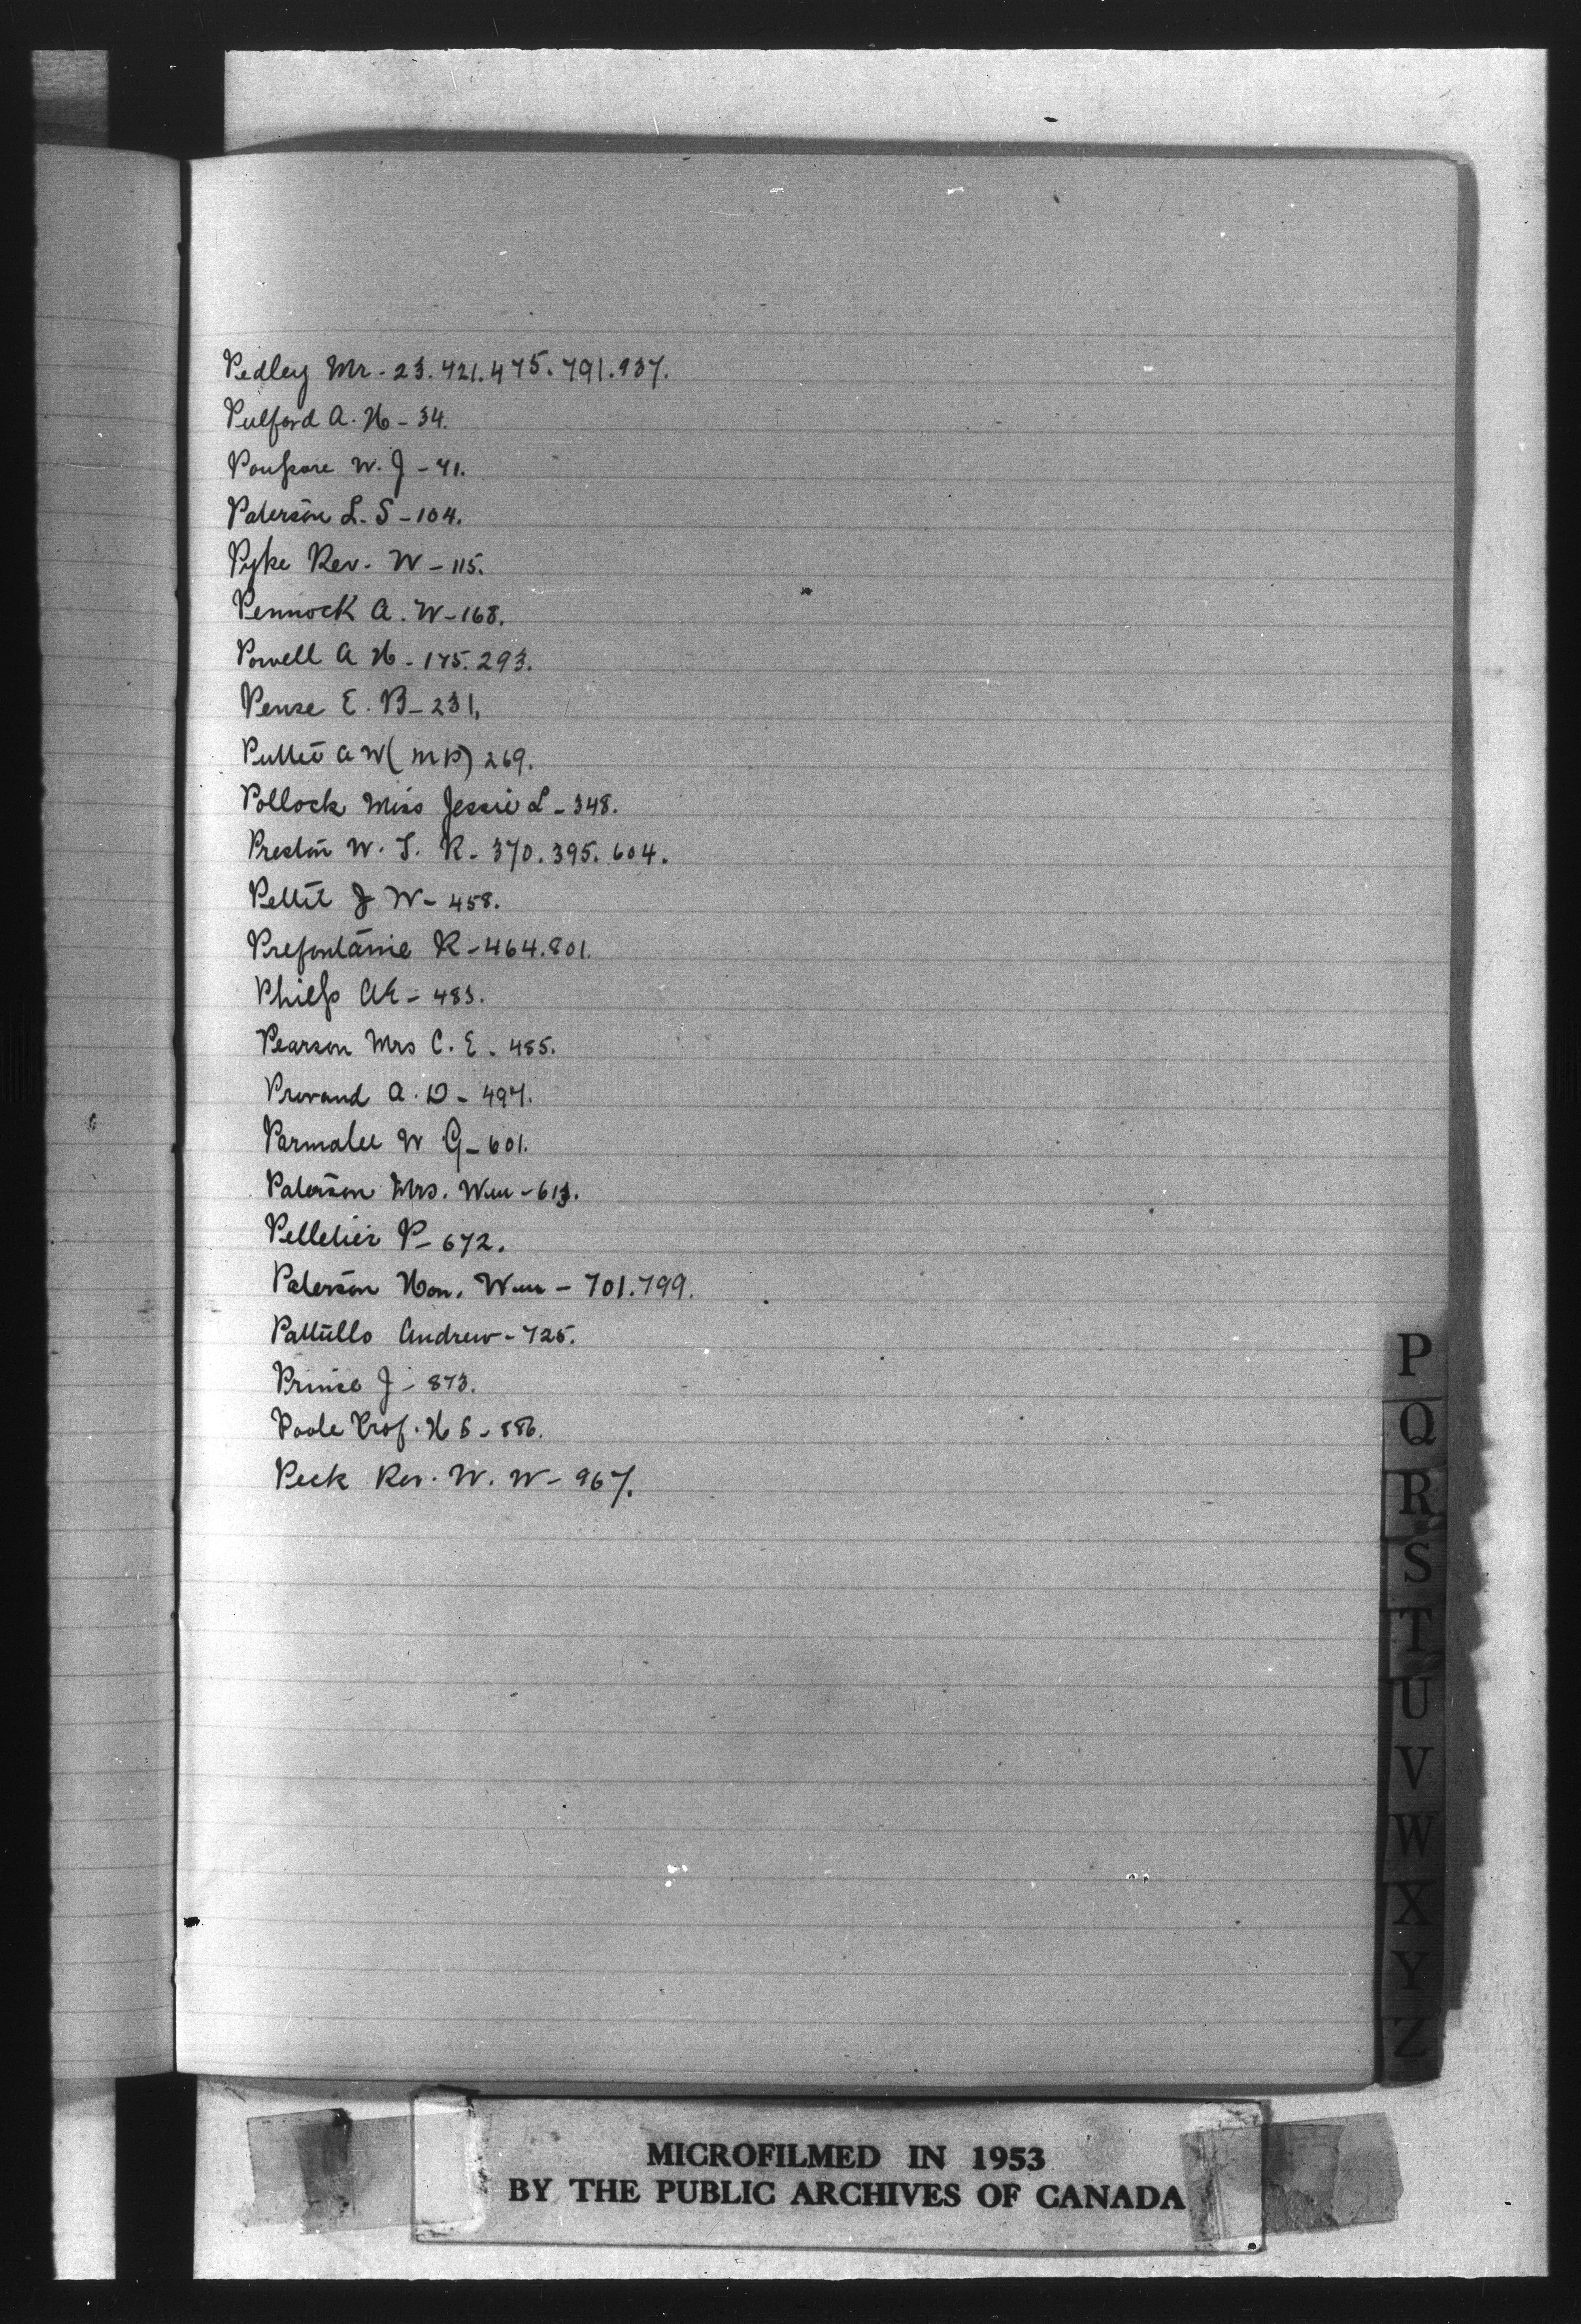 Pedley Mr. - 23. 421. 475. 791. 937.
Pulford A. H - 34.
Poupore W. J - 71.
Paterson L. S - 104.
Pyke Rev. W - 115.
Pennock A. W - 168.
Powell A H - 175. 293.
Pense E. B - 231,
Puttet A W (M P) 269.
Pollock Miss Jessie L - 348.
Preston W. T. R. - 370. 395. 604.
Pettit J W - 458.
Prefontaine R - 464. 801.
Philp AE - 483.
Pearson Mrs C. E. 485.
Provand A. D - 497.
Parmalee W G - 601.
Paterson Mrs. Wm - 613.
Pelletier P - 672.
Paterson Hon. Wm - 701. 799.
Pattullo Andrew - 725.
Prince J - 873.
Poole Prof. H S - 886.
Peck Rev. W. W - 967.
P
Q
R
S
T
U
V
W
X
Y
Z
MICROFILMED IN 1953
BY THE PUBLIC ARCHIVES OF CANADA